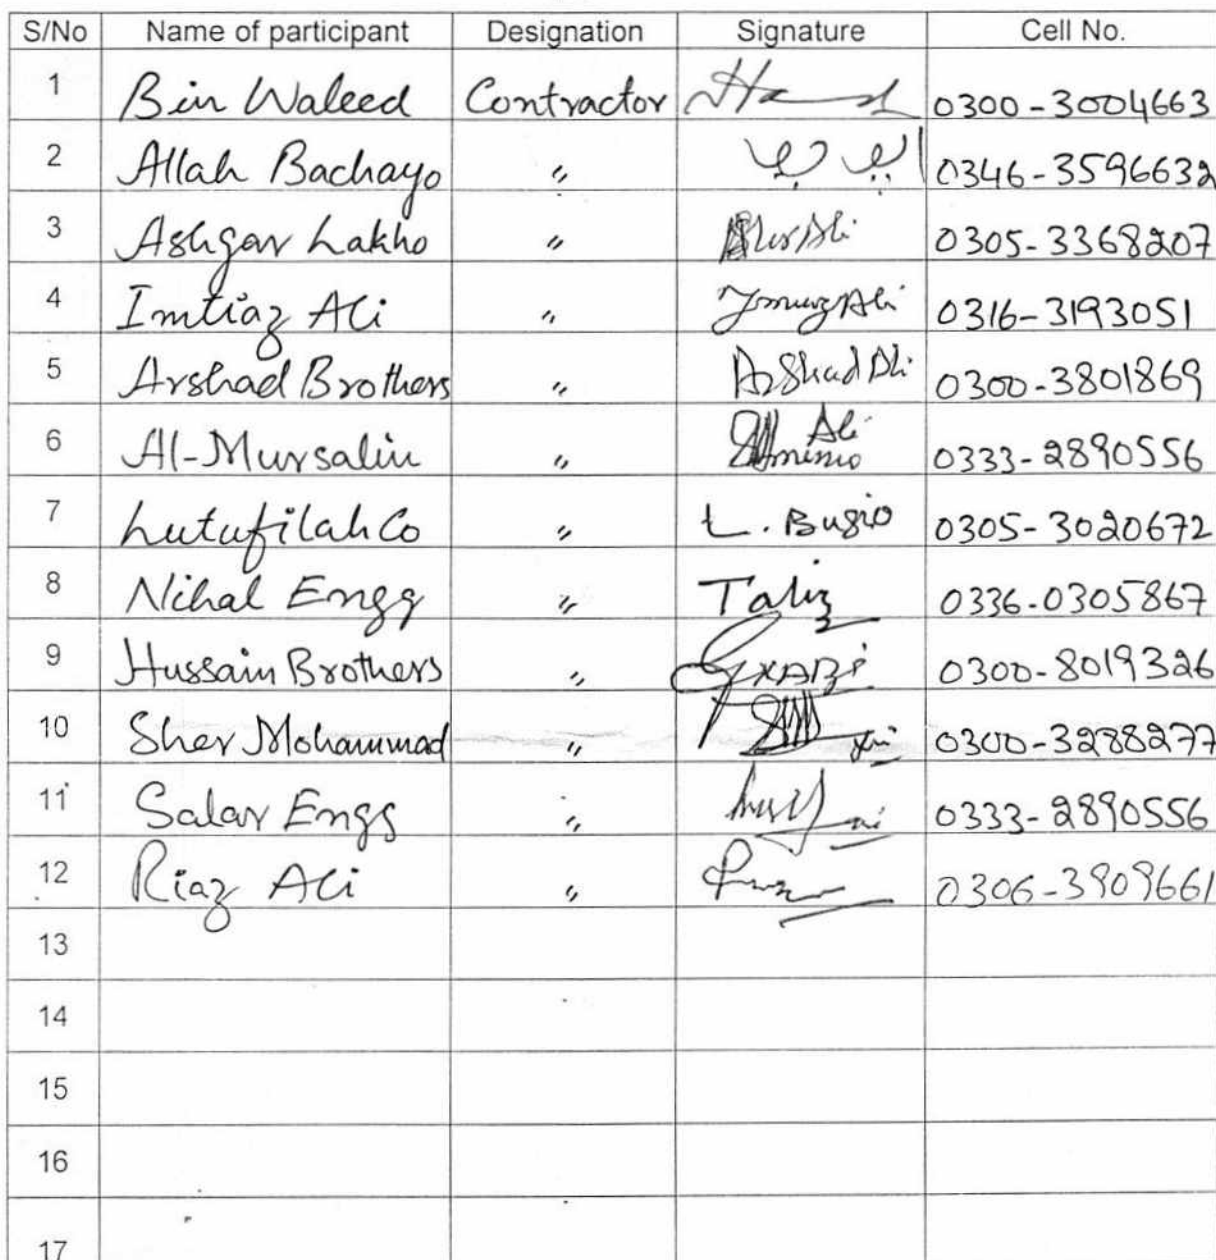 S/No Name of participant Designation Signature Cell No.
1 Bin Waleed Contractor 0300-3004663
2 Allah Bachayo " 0346-3596632
3 Ashgar Lakho " 0305-3368207
4 Imtiaz Ali " Ali 0316-3193051
5 Arshad Brothers " Arshad Ali 0300-3801869
6 Al-Mursalin " Ali 0333-2890556
7 Lutufilah Co " L. Bugio 0305-3020672
8 Nihal Engg " 0336-0305867
9 Hussain Brothers " 0300-8019326
10 Sher Mohammad " 0300-3288277
11 Salar Engg " 0333-2890556
12 Riaz Ali " 0306-3909661
13
14
15
16
17